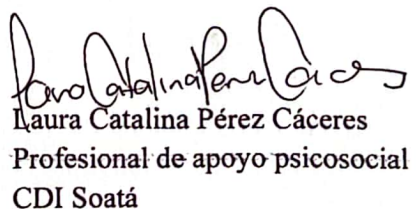 Laura Catalina Pérez Cáceres
Laura Catalina Pérez Cáceres
Profesional de apoyo psicosocial
CDI Soatá